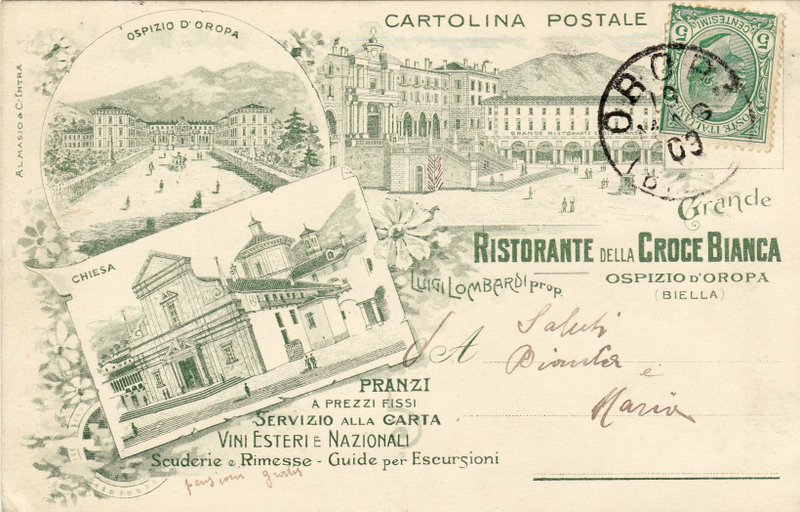 CARTOLINA POSTALE
OSPIZIO D'OROPA
5
CENTESIMI
POSTE ITALIANE
OROPA
09
GRANDE RISTORANTE
ALMASIO & C. INTRA
Grande
RISTORANTE DELLA CROCE BIANCA
LUIGI LOMBARDI prop.
OSPIZIO D'OROPA
(BIELLA)
CHIESA
A
Saluti
e
Maria
PRANZI
A PREZZI FISSI
SERVIZIO ALLA CARTA
VINI ESTERI E NAZIONALI
Scuderie e Rimesse - Guide per Escursioni